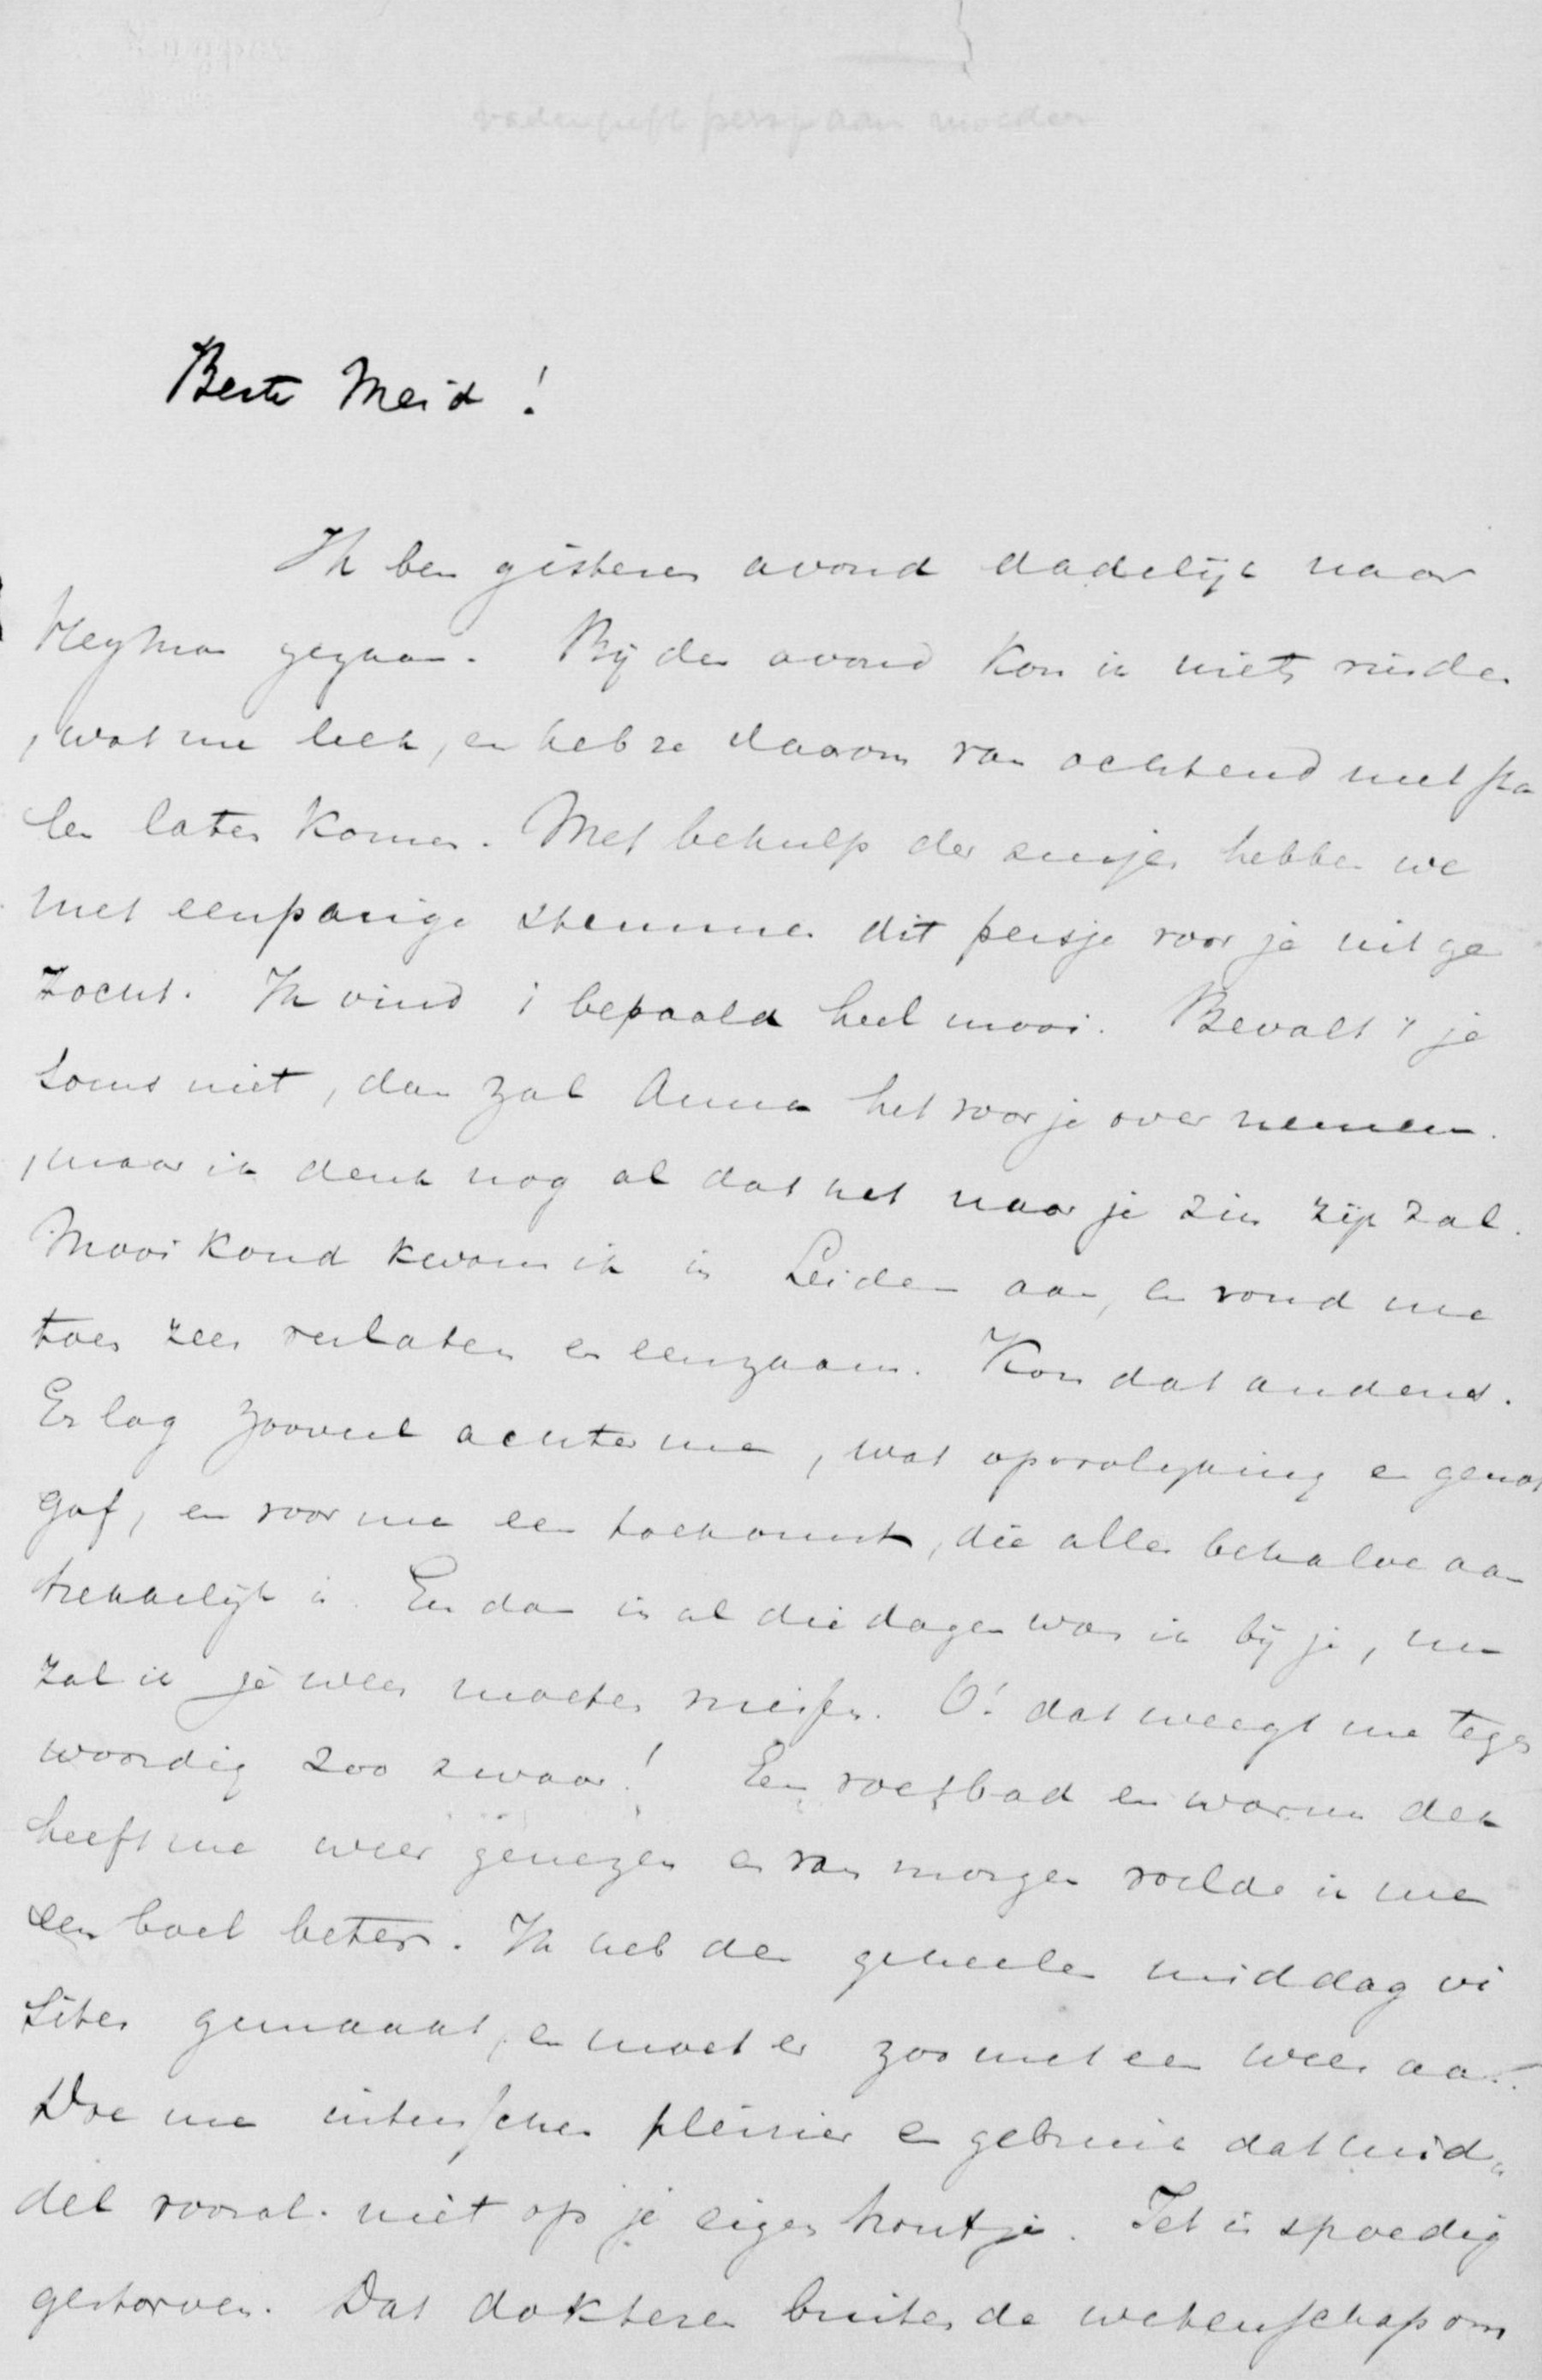 vader geeft persje aan moeder
Beste Meid!
Ik ben gisteren avond dadelijk naar
gegaan. Bij den avond kon ik niets vinden
, wat me leek, en heb ze daarom van ochtend met sta
len laten komen. Met behulp der zusjes hebben we
met eenparige stemmen dit persje voor je uit ge
zocht. Ik vind 't bepaald heel mooi. Bevalt 't je
soms niet, dan zal Anna het voor je over nemen.
, maar ik denk nog al dat het naar je zin zijn zal.
Mooi koud kwam ik in Leiden aan, en vond me
toen zeer verlaten en eenzaam. Kon dat anders.
Er lag zooveel achter me, wat opvrolijking en genot
gaf, en voor me een toekomst, die alles behalve aan
trekkelijk is. En dan in al die dagen was ik bij je, nu
zal ik je weer moeten missen. O! dat weegt me tegen
woordig zoo zwaar! Een voetbad en warm dek
heeft me weer genezen en van morgen voelde ik me
een boel beter. Ik heb den geheelen middag vi
sites gemaakt, en moet er zoo met een weer aan.
Doe me intusschen pleisier en gebruik dat mid„
del vooral niet op je eigen houtje. Jet is spoedig
gestorven. Dat dokteren buiten de wetenschap om